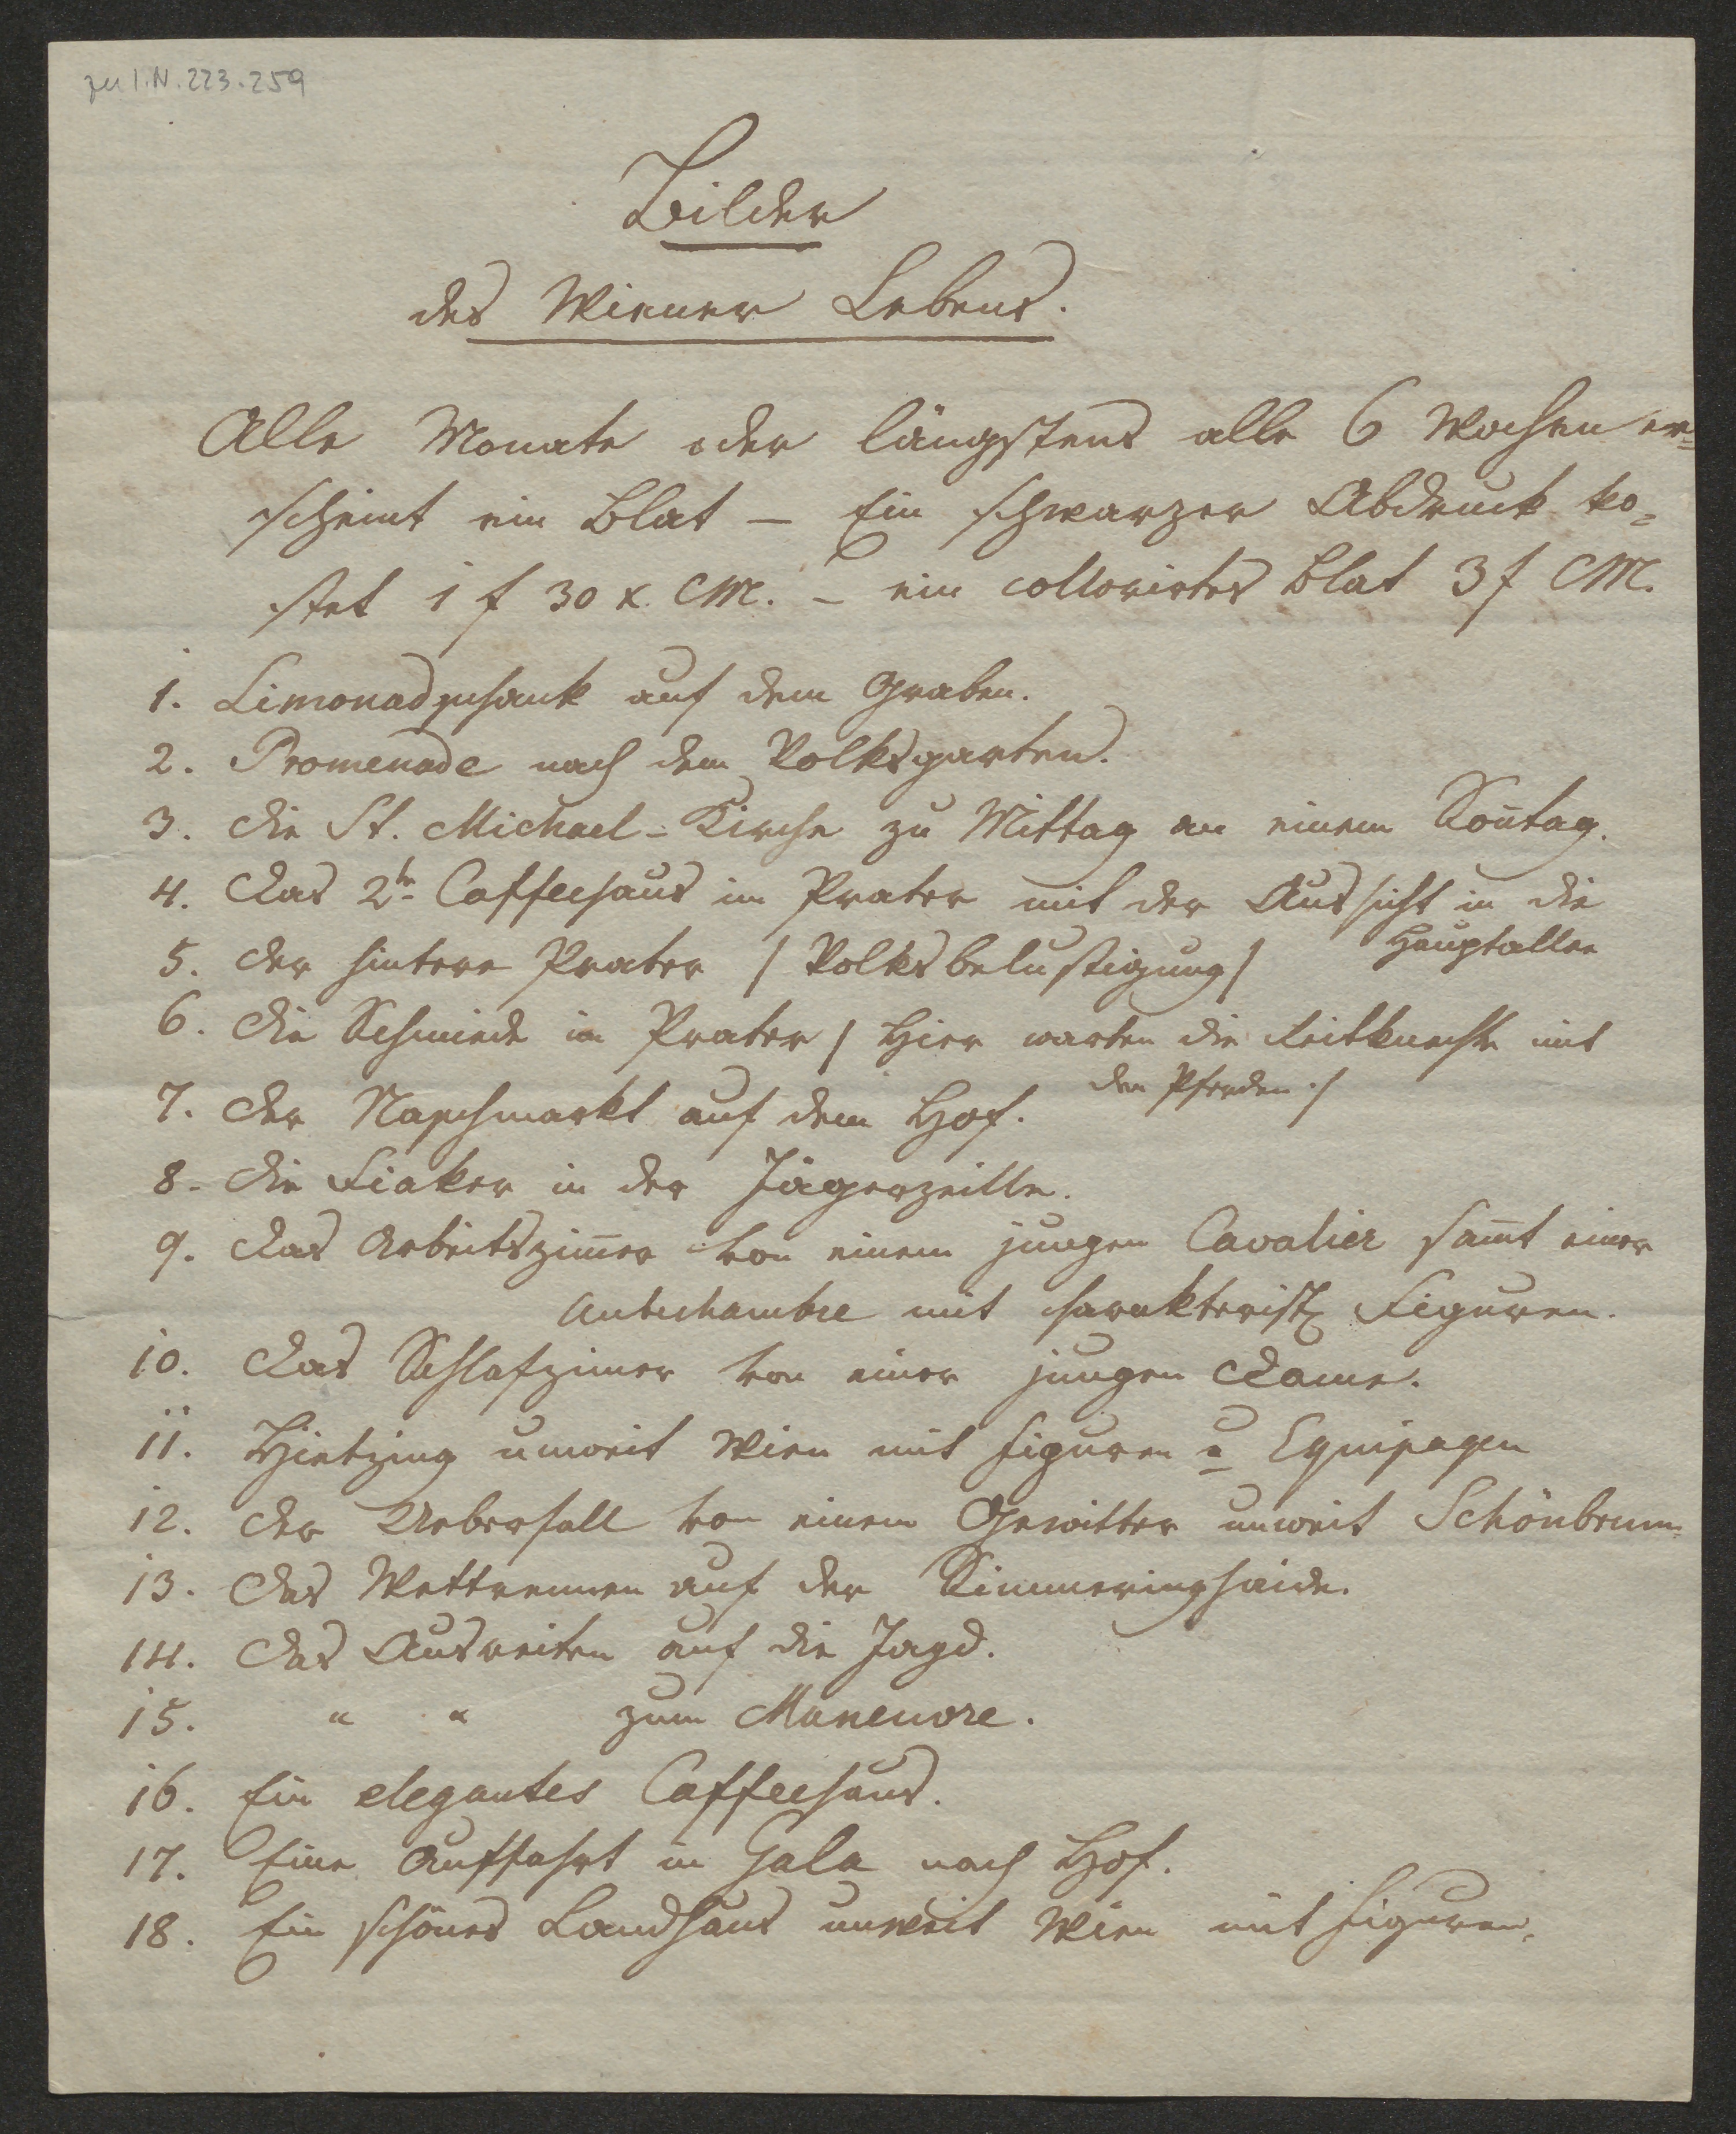 zu I.N. 223.259
Bilder
des Wiener Lebens.
Alle Monate oder längstens alle 6 Wochen er=
scheint ein Blat – Ein schwarzer Abdruck ko=
stet 1 f 30 x. CM. – ein collorirtes Blat 3 f CM.
1. Limonadschank auf dem Graben.
2. Promenade nach dem Volksgarten.
3. Die St. Michael=Kirche zu Mittag an einem Son̄tag.
4. Das 2te Caffeehaus im Prater mit der Aussicht in die
Hauptallee
5. Der hintere Prater / Volksbelustigung /
6. Die Schmiede im Prater / Hier warten die Reitknechte mit
den Pferden ./
7. Der Naschmarkt auf dem Hof.
8. Die Fiaker in der Jägerzeille.
9. Das Arbeitszim̄er von einem jungen Cavalier sam̄t einer
Antichambre mit charakterist. Figuren.
10. Das Schlafzimer von einer jungen Dame.
11. Hietzing unweit Wien mit Figuren u Equipagen
12. Der Ueberfall von einem Gewitter unweit Schönbrunn
13. Das Wettrennen auf der Simmeringhaide.
14. Das Ausreiten auf die Jagd.
15. " " zum Maneuvre.
16. Ein elegantes Caffeehaus.
17. Eine Auffahrt in Gala nach Hof.
18. Ein schönes Landhaus unweit Wien mit Figuren.